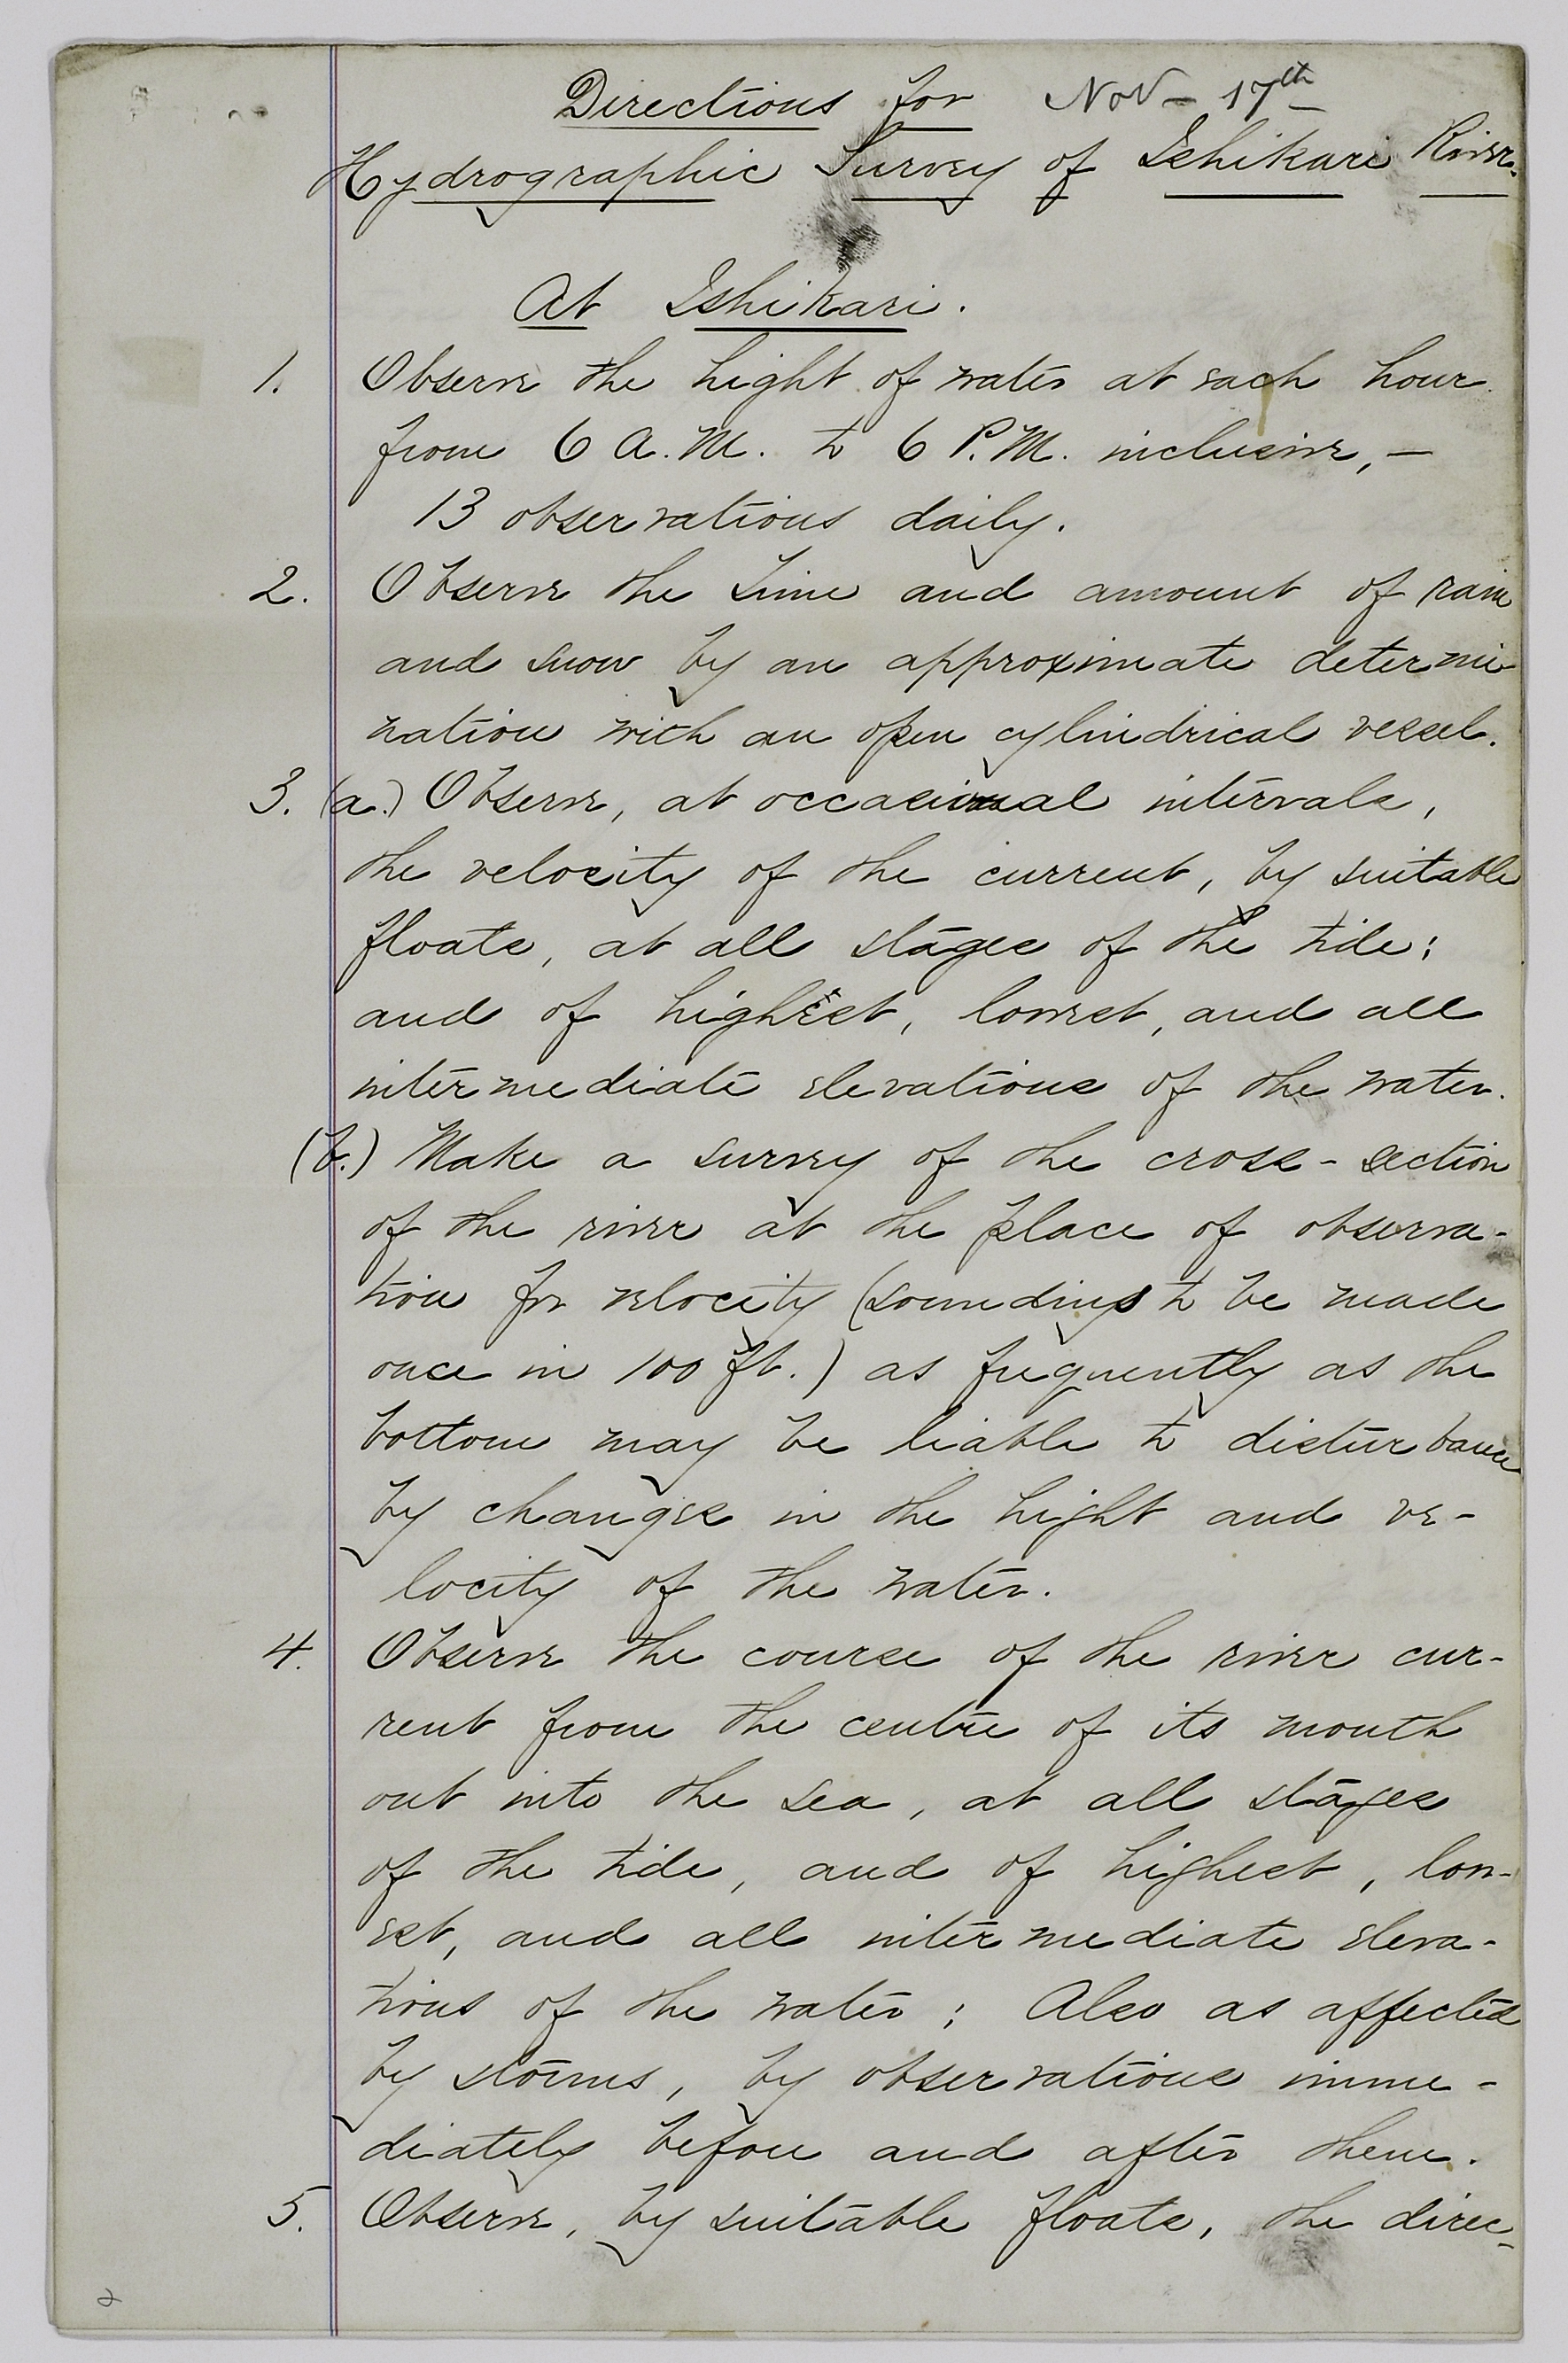 Directions for Nov- 17th
Hydrographic Survey of Ishikari River.
At Ishikari.
1. Observe the hight of water at each hour
from 6 A.M. to 6 P.M. inclusive, —
13 observations daily.
2. Observe the time and amount of rain
and snow by an approximate determi-
nation with an open cylindrical vessel.
3. (a.) Observe, at occasional intervals,
the velocity of the current, by suitable
floats, at all stages of the tide;
and of highest, lowest, and all
intermediate elevations of the water.
(b.) Make a survey of the cross-section
of the river at the place of observa-
tion for velocity (soundings to be made
once in 100 ft.) as frequently as the
bottom may be liable to disturbance
by changes in the hight and ve-
locity of the water.
4. Observe the course of the river cur-
rent from the centre of its mouth
out into the sea, at all stages
of the tide, and of highest, low-
est, and all intermediate eleva-
tions of the water; Also as affected
by storms, by observations imme-
diately before and after them.
5. Observe, by suitable floats, the direc-
2